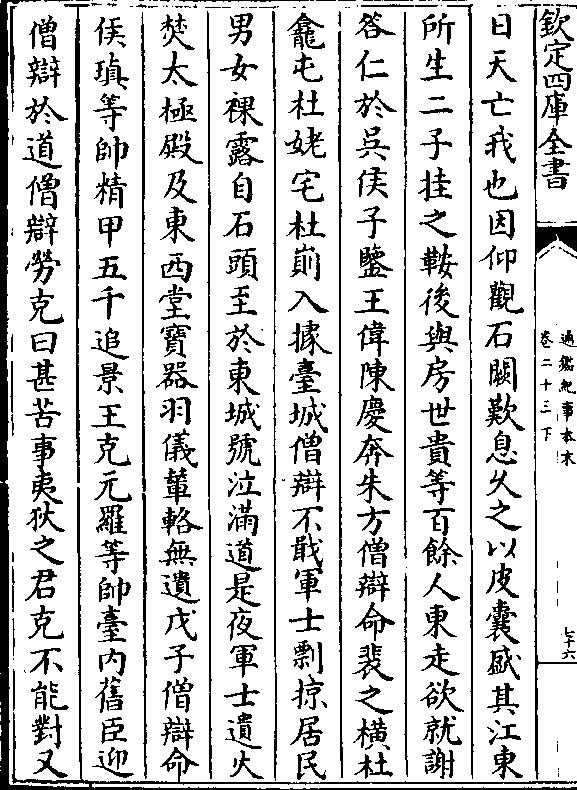 欽定四庫全書
通鑑紀事本末
卷二十三下
七十六
曰天亡我也因仰觀石闕歎息久之以皮囊盛其江東
所生二子挂之鞍後與房世貴等百餘人東走欲就謝
答仁於吳侯子鑒王偉陳慶奔朱方僧辯命裴之橫杜
龕屯杜姥宅杜崱入據臺城僧辯不戢軍士剽掠居民
男女裸露自石頭至於東城號泣滿道是夜軍士遺火
焚太極殿及東西堂寶器羽儀輦輅無遺戊子僧辯命
侯瑱等帥精甲五千追景王克元羅等帥臺內舊臣迎
僧辯於道僧辯勞克曰甚苦事夷狄之君克不能對又